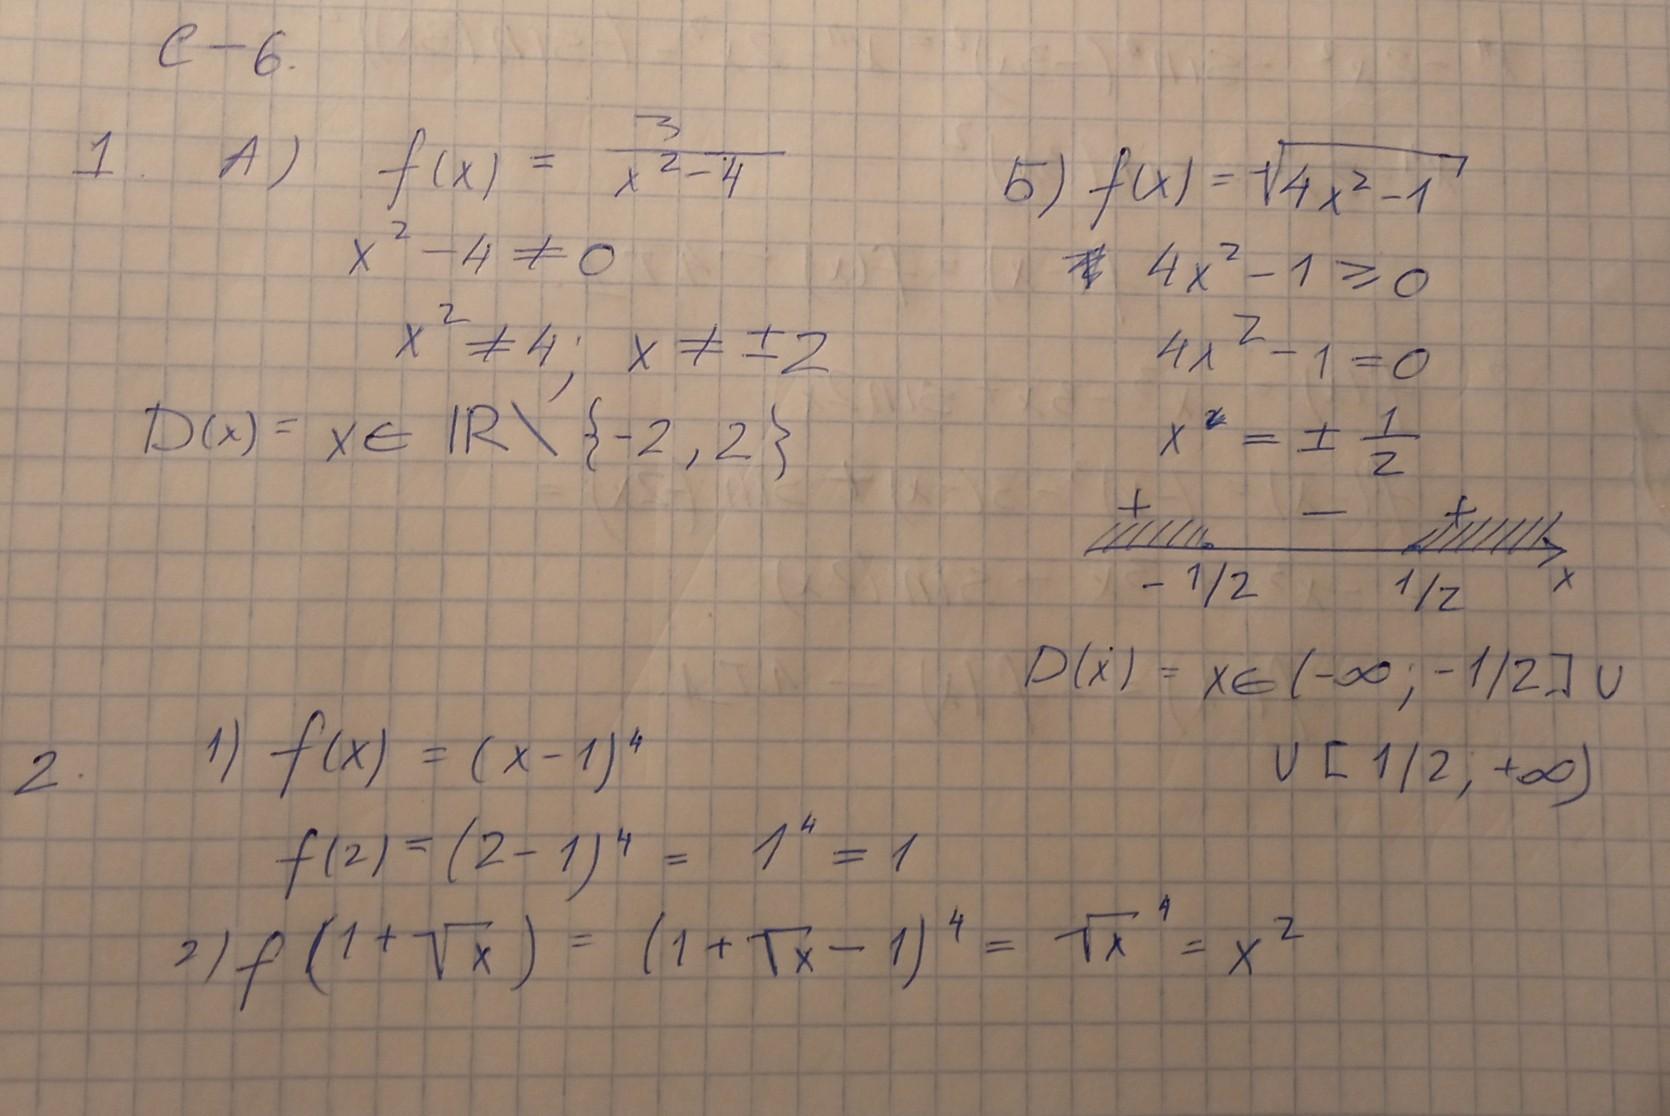 С-6.
1. А) f(x) = 3/(x²-4)
x² - 4 ≠ 0
x² ≠ 4; x ≠ ±2
D(x) = x ∈ ℝ \ {-2, 2}
Б) f(x) = √(4x²-1)
4x² - 1 ⩾ 0
4x² - 1 = 0
x = ± 1/2
+ − +
-1/2 1/2 x
D(x) = x ∈ (-∞; -1/2] ∪
∪ [1/2; +∞)
2. 1) f(x) = (x-1)⁴
f(2) = (2-1)⁴ = 1⁴ = 1
2) f(1+√x) = (1+√x-1)⁴ = √x⁴ = x²